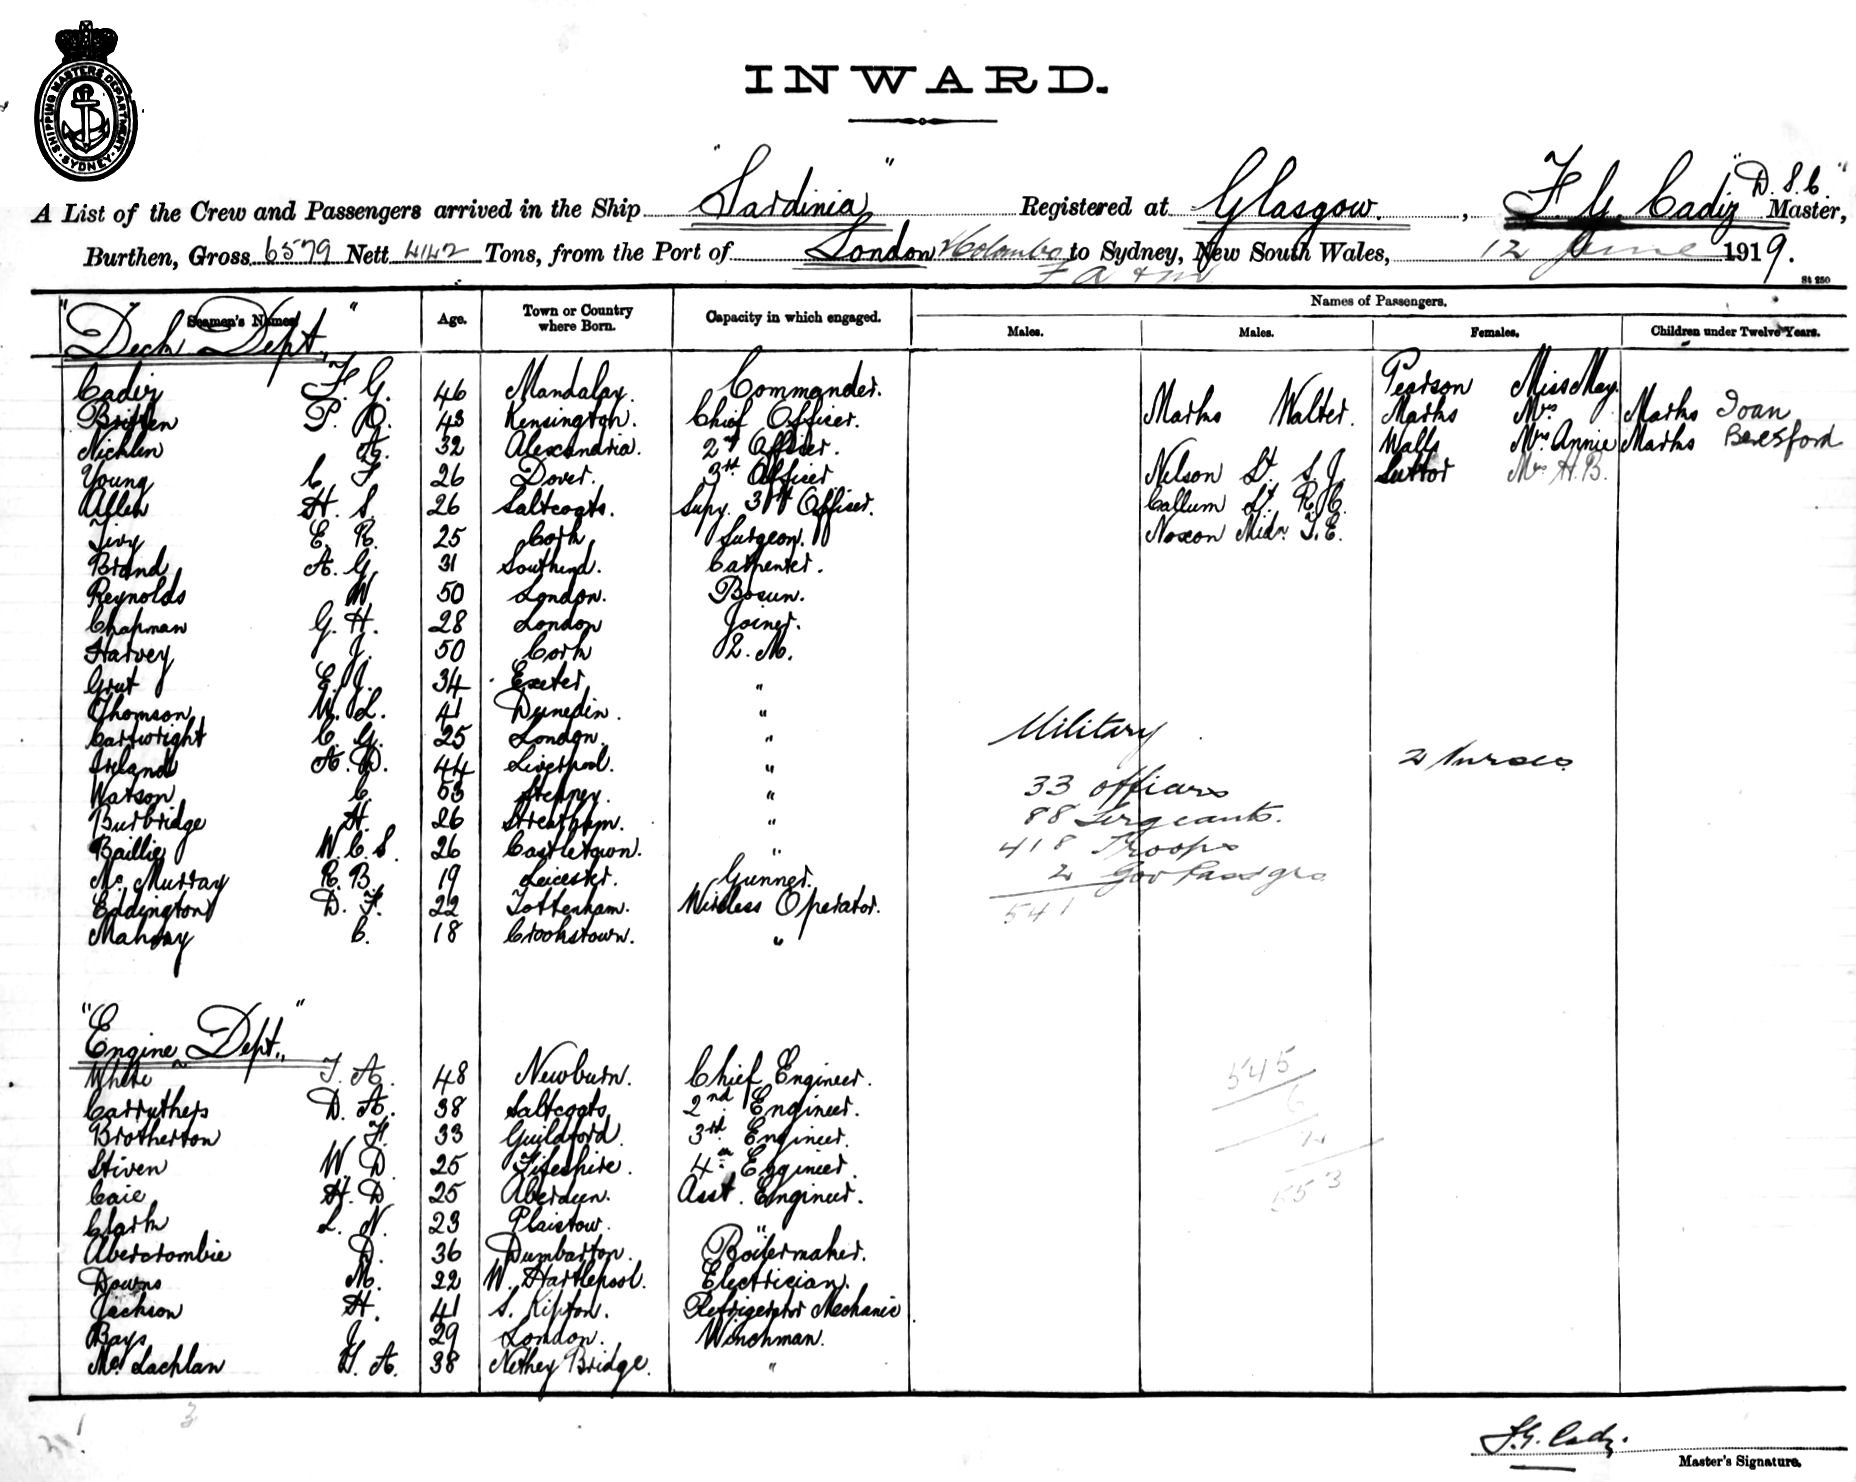 SHIPPING MASTERS DEPARTMENT · SYDNEY ·
INWARD.
A List of the Crew and Passengers arrived in the Ship "Sardinia" Registered at Glasgow. , F. G. Cadiz "D.S.C." Master,
Burthen, Gross 6579 Nett 4142 Tons, from the Port of London Colombo to Sydney, New South Wales, 12 June 1919.
St 250
Seamen's Names Age. Town or Country where Born. Capacity in which engaged. Names of Passengers.
Males. Males. Females. Children under Twelve Years.
"Deck Dept."
Pearson Miss May.
Cadiz F. G. 46 Mandalay. Commander.
Britten P. 43 Kensington. Chief Officer. Marks Walter. Marks Mrs Marks Joan
Nicklin A. 32 Alexandria. 2nd Officer. Walls Mrs Annie Marks Beresford
Young C. F. 26 Dover. 3rd Officer Nelson Lt. S. J. Suttor Mrs H. B.
Allen H. S. 26 Saltcoats. Supy. 3rd Officer. Callum Lt. R. C.
Tivy E. R. 25 Cork Surgeon. Noxon Midn. T. E.
Brand A. G. 31 Southend. Carpenter.
Reynolds W. 50 London. Bosun.
Chapman G. H. 28 London Joiner.
Harvey J. 50 Cork Q. M.
Grut E. J. 34 Exeter "
Thomson W. L. 41 Dunedin. "
Cartwright C. G. 25 London. "
Military
Ireland A. D. 44 Liverpool. "
2 Nurses
Watson C. 53 Stepney. "
33 officers
Burbridge H. 26 Streatham. "
88 Sergeants.
Baillie W. C. S. 26 Castletown. "
418 Troops
McMurray R. B. 19 Leicester. Gunner.
2 Gov Passgrs
Eddington D. F. 22 Tottenham. Wireless Operator.
541
Mahony C. 18 Crookstown. "
"Engine Dept."
White T. A. 48 Newburn. Chief Engineer.
545
Carruthers D. A. 38 Saltcoats 2nd Engineer.
6
Brotherton F. 33 Guildford. 3rd Engineer.
2
Stiven W. D. 25 Fifeshire. 4th Engineer.
Caie H. D. 25 Aberdeen. Asst. Engineer.
553
Clark L. N. 23 Plaistow. "
Abercrombie D. 36 Dumbarton. Boilermaker.
Downs M. 22 W. Hartlepool. Electrician.
Jackson H. 41 S. Kipton. Refrigerator Mechanic
Bays J. 29 London. Winchman.
McLachlan G. A. 38 Nethey Bridge. "
3
F. G. Cadiz.
Master's Signature.